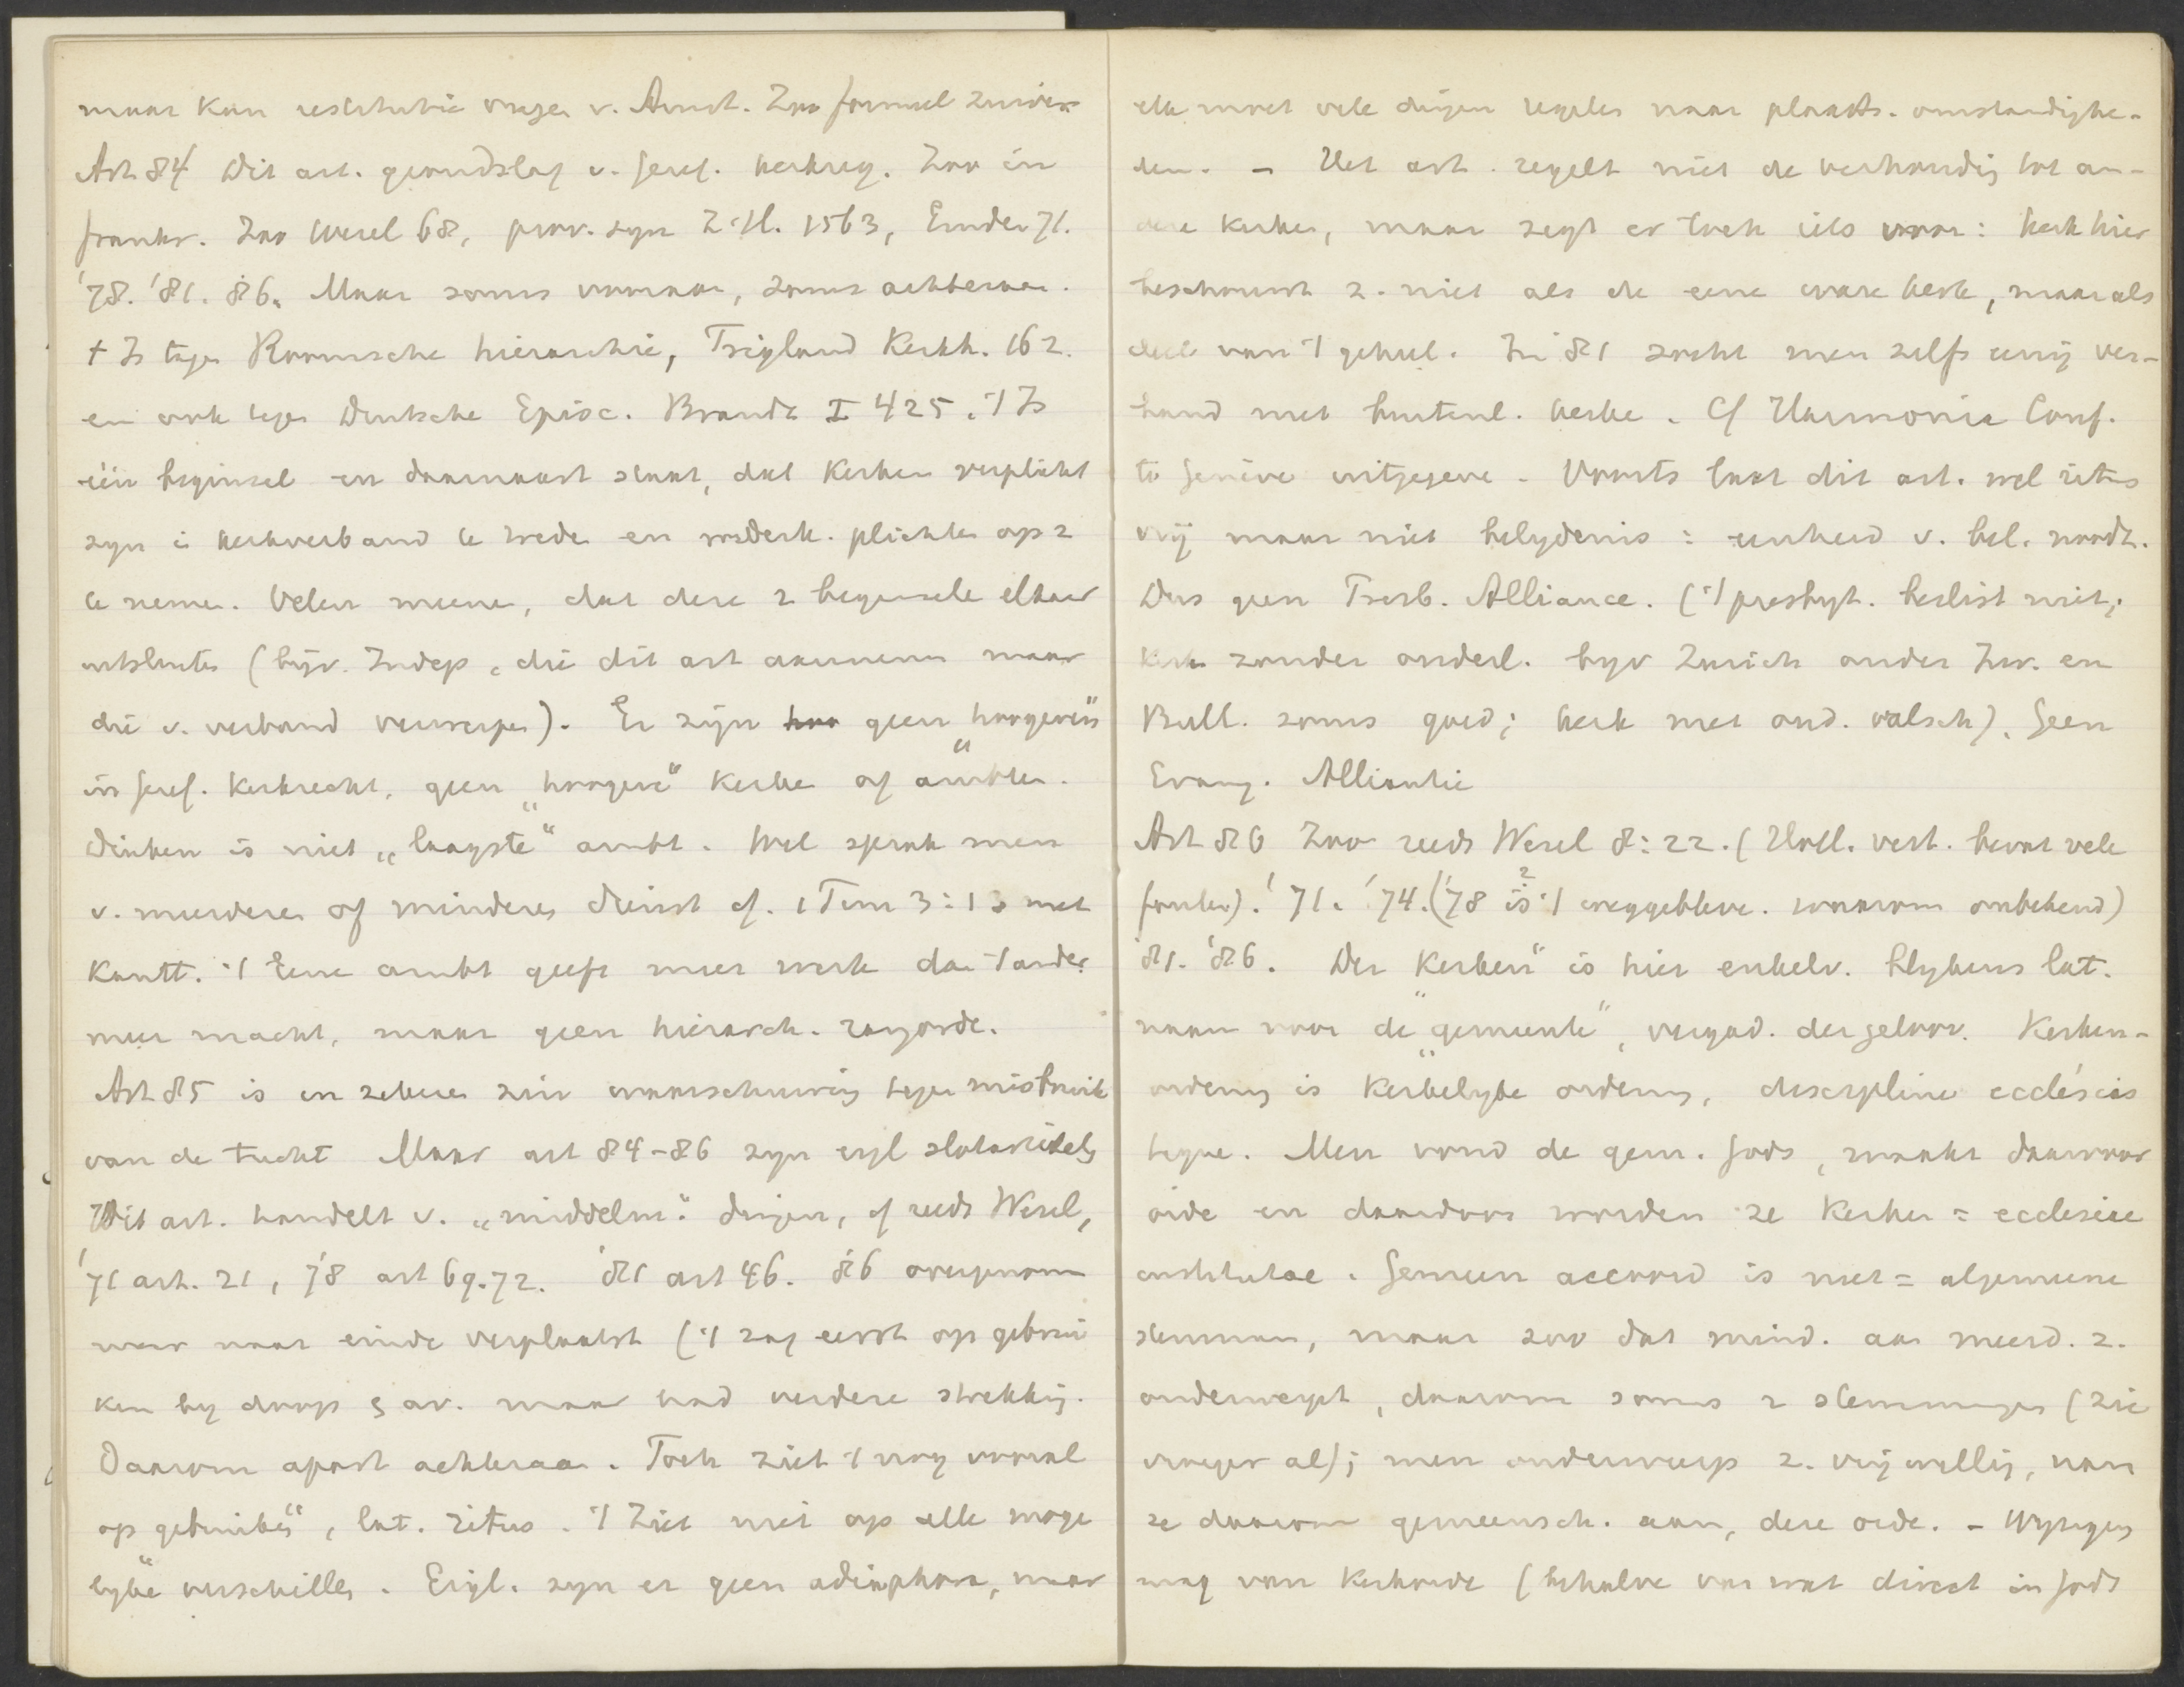 maar kan restitutie vragen v. Amst. Zoo formeel zuiver
Art 84 Dit art. grondslag v. Geref. kerkreg. Zoo in
frankr. Zoo Wesel 68, prov. syn Z.H. 1563, Emden 71.
'78. '81. '86. Maar soms vooraan, soms achteraan.
't Is tegen Roomsche hierarchie, Trigland Kerkh. 162.
en ook tegen Duitsche Episc. Brandt I 425. 't Is
één beginsel en daarnaast staat, dat Kerken verplicht
zyn i kerkverband te trede en wederk. plichten op z
te nemen. Velen meene, dat deze 2 beginsele elkaar
uitsluiten (bijv. Indep. die dit art aannemen maar
die v. verband verwerpen). Er zijn geen "hoogeren"
in Geref. Kerkrecht, geen "hoogere" Kerke of ambten.
Diaken is niet "laagste" ambt. Wel sprak men
v. meerdere of mindere dienst cf. 1 Tim 3:13 met
Kantt. 't Eene ambt geeft meer werk dan 't ander
meer macht, maar geen hierarch. rangorde.
Art 85 is in zekere zin waarschuwing tegen misbruik
van de tucht Maar art 84-86 zyn eigl slotartikels
Dit art. handelt v. "middelm." dingen, cf reeds Wesel,
'71 art. 21, '78 art 69.72. '81 art 46. '86 overgenom
maar naar einde verplaatst ('t zag eerst op gebrui
ken by doop & av. maar had verdere strekking.
Daarom apart achteraan. Toch ziet 't nog vooral
op gebruiken", lat. ritus. 't Ziet niet op alle moge
lyke verschillen. Eigl. zyn er geen adiaphora, maar
elk moet vele dingen regelen naar plaats. omstandighe-
den. - Het art. regelt niet de verhouding tot an-
dere Kerken, maar zegt er toch iets van: kerk hier
beschouwt z. niet als de eene ware kerk, maar als
deel van 't geheel. In 81 zocht men zelfs eenig ver-
band met buitenl. kerke. Cf Harmonia Conf.
te Genève uitgegeve. Voorts laat dit art. wel ritus
vrij maar niet belydenis: eenheid v. bel. noodz.
Dus geen Presb. Alliance. ('t presbyt. beslist niet;
Kerk zonder ouderl. byv Zurich onder Zw. en
Bull. soms goed; kerk met oud. valsch). Geen
Evang. Alliantie
Art 86 Zoo reeds Wesel 8:22. (Holl. vert. bevat vele
fouten). '71. '74. ('78 is 't weggebleve. waarom onbekend)
'81. '86. Der Kerken" is hier enkelv. blykens lat.
naam voor de "gemeente", vergad. der geloov. Kerken-
ordening is Kerkelyke ordening, discipline ecclésias
tique. Men vond de gem. Gods, maakt daarvoor
orde en daardoor worden ze Kerken = ecclesiae
institutae. Gemeen accoord is niet = algemeene
stemmen, maar zoo dat mind. aan meerd. z.
onderwerpt, daarom soms 2 stemmingen (zie
vroeger al); men onderwerp z. vrijwillig, nam
ze daarom gemeensch. aan, deze orde. - Wyziging
mag van Kerkorde (behalve van wat direct in Gods